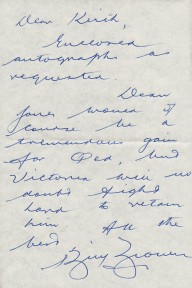 Dear Keith,
Enclosed
autographs as
requested.
Dean
Jones would of
course be a
tremendous gain
for Qld, but
Victoria will no
doubt fight
hard to retain
him All the
best